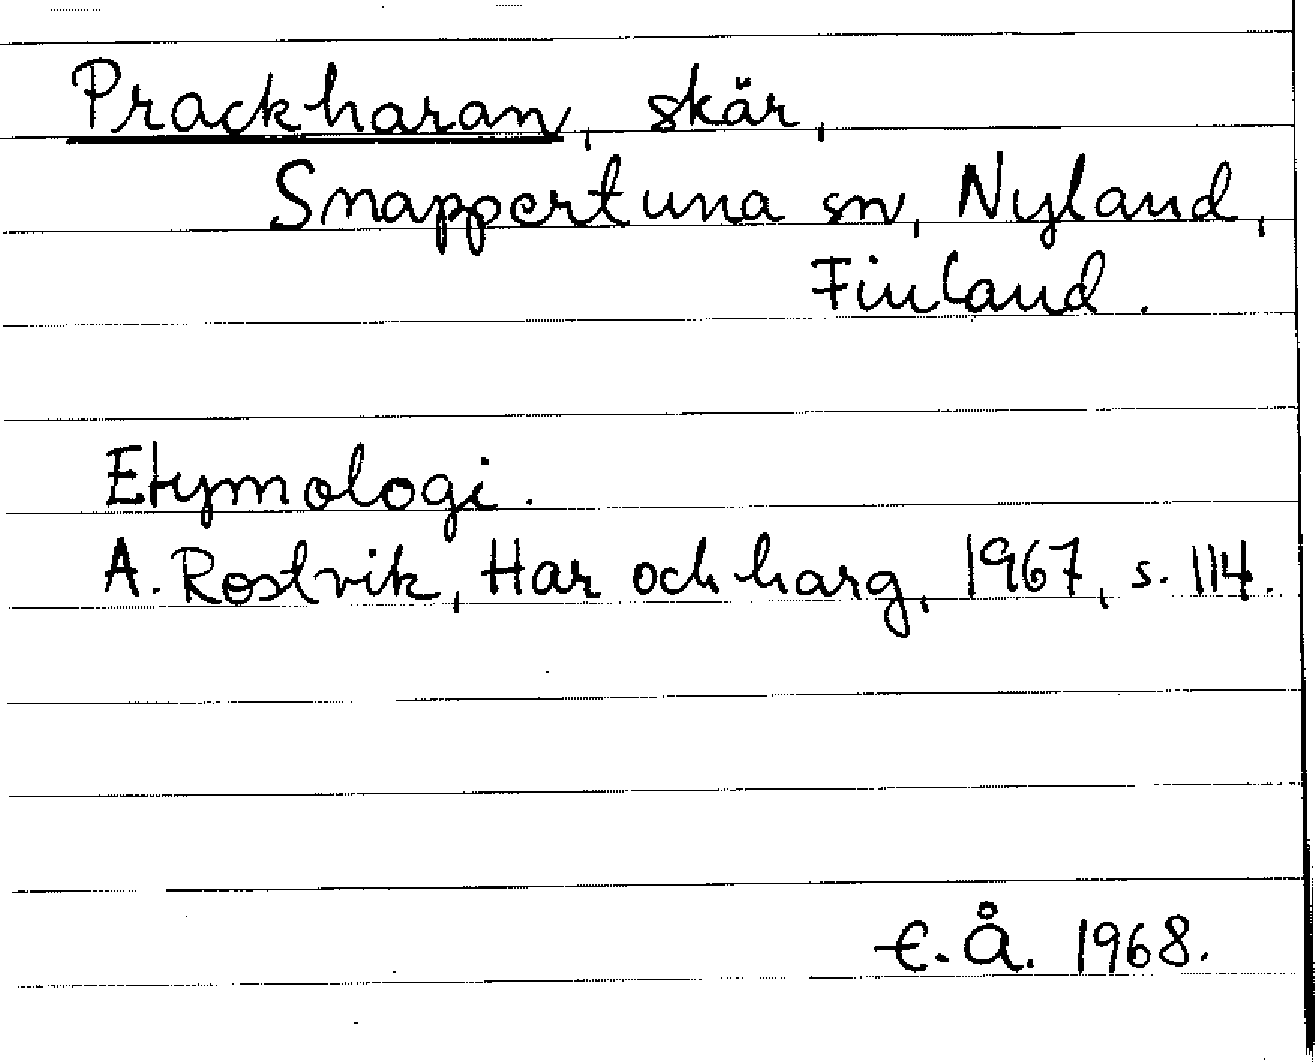 Prackharan, skär,
Snappertuna sn, Nyland,
Finland.
Etymologi.
A. Rostvik, Har och harg, 1967, s. 114.
E.Å. 1968.